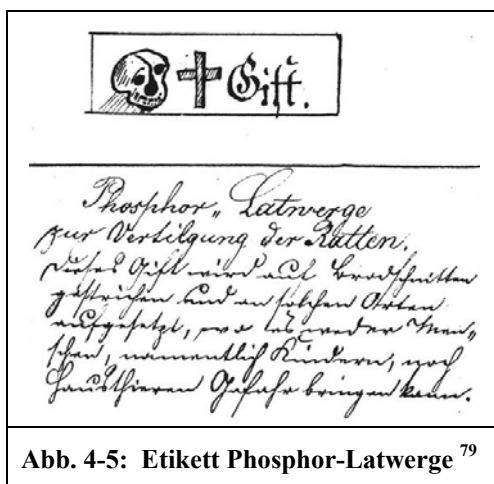 Gift.
Phosphor„ Latwerge
zur Vertilgung der Ratten.
Dieses Gift wird auf Brodschnitten
gestrichen und an solchen Orten
aufgesetzt, wo es weder Men„
schen, namentlich Kindern, noch
Hausthieren Gefahr bringen kann.
Abb. 4-5: Etikett Phosphor-Latwerge 79